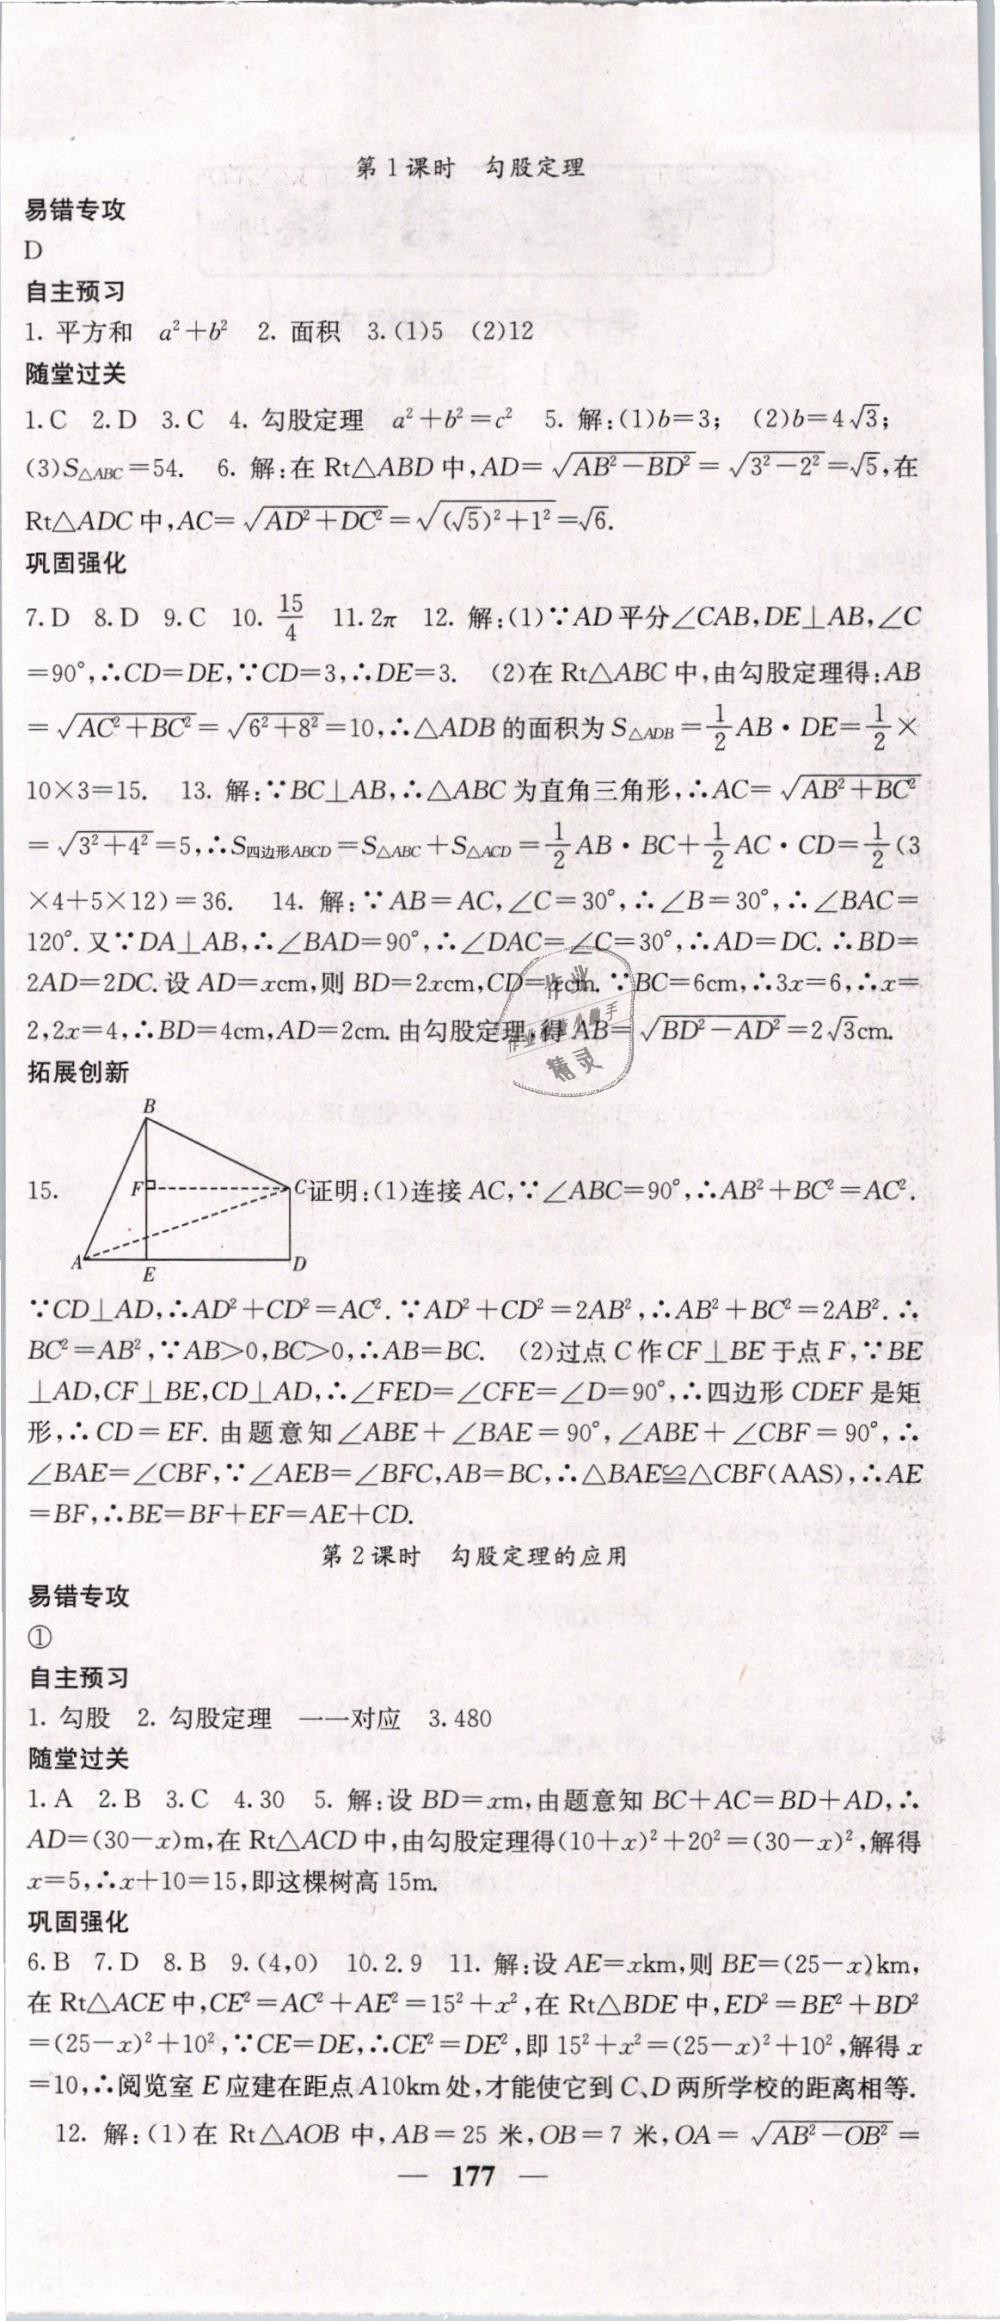 第1课时 勾股定理
易错专攻
D
自主预习
1. 平方和 a²+b² 2. 面积 3.(1)5 (2)12
随堂过关
1.C 2.D 3.C 4. 勾股定理 a²+b²=c² 5. 解:(1)b=3; (2)b=4√3;
(3)S△ABC=54. 6. 解:在 Rt△ABD 中,AD=√(AB²-BD²)=√(3²-2²)=√5,在
Rt△ADC 中,AC=√(AD²+DC²)=√((√5)²+1²)=√6.
巩固强化
7.D 8.D 9.C 10. 15/4 11.2π 12. 解:(1)∵AD 平分∠CAB,DE⊥AB,∠C
=90°,∴CD=DE,∵CD=3,∴DE=3. (2)在 Rt△ABC 中,由勾股定理得:AB
=√(AC²+BC²)=√(6²+8²)=10,∴△ADB 的面积为 S△ADB=1/2 AB·DE=1/2×
10×3=15. 13. 解:∵BC⊥AB,∴△ABC 为直角三角形,∴AC=√(AB²+BC²)
=√(3²+4²)=5,∴S四边形ABCD=S△ABC+S△ACD=1/2 AB·BC+1/2 AC·CD=1/2(3
×4+5×12)=36. 14. 解:∵AB=AC,∠C=30°,∴∠B=30°,∴∠BAC=
120°.又∵DA⊥AB,∴∠BAD=90°,∴∠DAC=∠C=30°,∴AD=DC.∴BD=
2AD=2DC.设 AD=xcm,则 BD=2xcm,CD=xcm.∵BC=6cm,∴3x=6,∴x=
2,2x=4,∴BD=4cm,AD=2cm.由勾股定理,得 AB=√(BD²-AD²)=2√3cm.
作业
精灵
拓展创新
B
15. F C 证明:(1)连接 AC,∵∠ABC=90°,∴AB²+BC²=AC².
A E D
∵CD⊥AD,∴AD²+CD²=AC².∵AD²+CD²=2AB²,∴AB²+BC²=2AB².∴
BC²=AB²,∵AB>0,BC>0,∴AB=BC. (2)过点 C 作 CF⊥BE 于点 F,∵BE
⊥AD,CF⊥BE,CD⊥AD,∴∠FED=∠CFE=∠D=90°,∴四边形 CDEF 是矩
形,∴CD=EF.由题意知∠ABE+∠BAE=90°,∠ABE+∠CBF=90°,∴
∠BAE=∠CBF,∵∠AEB=∠BFC,AB=BC,∴△BAE≌△CBF(AAS),∴AE
=BF,∴BE=BF+EF=AE+CD.
第2课时 勾股定理的应用
易错专攻
①
自主预习
1. 勾股 2. 勾股定理 一一对应 3.480
随堂过关
1.A 2.B 3.C 4.30 5. 解:设 BD=xm,由题意知 BC+AC=BD+AD,∴
AD=(30-x)m,在 Rt△ACD 中,由勾股定理得(10+x)²+20²=(30-x)²,解得
x=5,∴x+10=15,即这棵树高 15m.
巩固强化
6.B 7.D 8.B 9.(4,0) 10.2.9 11. 解:设 AE=xkm,则 BE=(25-x)km,
在 Rt△ACE 中,CE²=AC²+AE²=15²+x²,在 Rt△BDE 中,ED²=BE²+BD²
=(25-x)²+10²,∵CE=DE,∴CE²=DE²,即 15²+x²=(25-x)²+10²,解得 x
=10,∴阅览室 E 应建在距点A10km 处,才能使它到 C、D 两所学校的距离相等.
12. 解:(1)在 Rt△AOB 中,AB=25 米,OB=7 米,OA=√(AB²-OB²)=
— 177 —